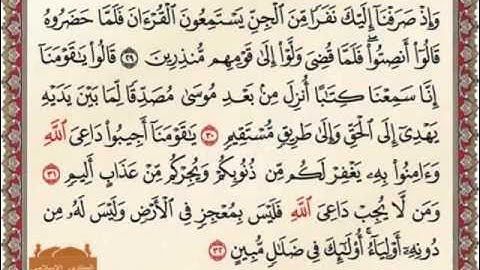 وَإِذْ صَرَفْنَآ إِلَيْكَ نَفَرًا مِّنَ ٱلْجِنِّ يَسْتَمِعُونَ ٱلْقُرْءَانَ فَلَمَّا حَضَرُوهُ
قَالُوٓا۟ أَنصِتُوا۟ ۖ فَلَمَّا قُضِىَ وَلَّوْا۟ إِلَىٰ قَوْمِهِم مُّنذِرِينَ ٢٩ قَالُوا۟ يَـٰقَوْمَنَآ
إِنَّا سَمِعْنَا كِتَـٰبًا أُنزِلَ مِنۢ بَعْدِ مُوسَىٰ مُصَدِّقًا لِّمَا بَيْنَ يَدَيْهِ
يَهْدِىٓ إِلَى ٱلْحَقِّ وَإِلَىٰ طَرِيقٍ مُّسْتَقِيمٍ ٣٠ يَـٰقَوْمَنَآ أَجِيبُوا۟ دَاعِىَ ٱللَّهِ
وَءَامِنُوا۟ بِهِۦ يَغْفِرْ لَكُم مِّن ذُنُوبِكُمْ وَيُجِرْكُم مِّنْ عَذَابٍ أَلِيمٍ ٣١
وَمَن لَّا يُجِبْ دَاعِىَ ٱللَّهِ فَلَيْسَ بِمُعْجِزٍ فِى ٱلْأَرْضِ وَلَيْسَ لَهُۥ مِن
دُونِهِۦٓ أَوْلِيَآءُ ۚ أُو۟لَـٰٓئِكَ فِى ضَلَـٰلٍ مُّبِينٍ ٣٢